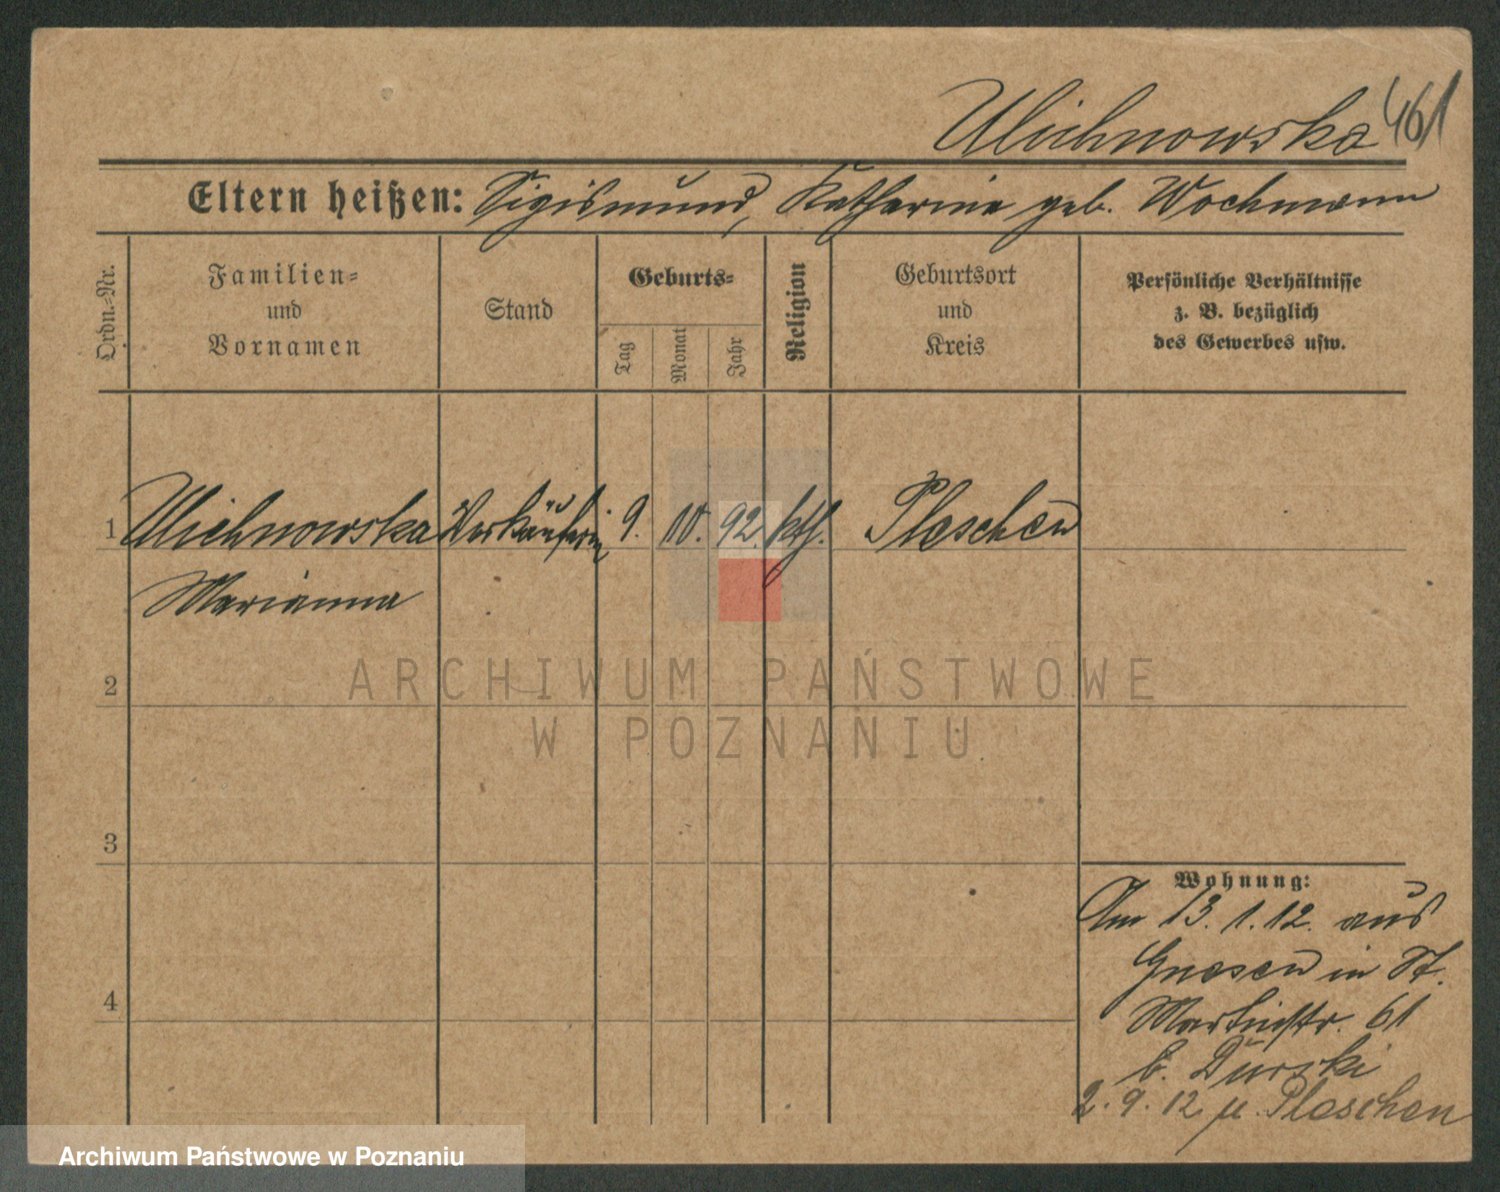 Ulichnowska 461
Eltern heißen: Sigismund, Katharina geb. Wochmann
Ordn.-Nr.
Familien-
und
Vornamen
Stand
Geburts-
Tag
Monat
Jahr
Religion
Geburtsort
und
Kreis
Persönliche Verhältnisse
z. B. bezüglich
des Gewerbes usw.
1 Ulichnowska Verkäuferin 9. 10. 92. kth. Pleschen
Marianna
2
ARCHIWUM PAŃSTWOWE
W POZNANIU
3
Wohnung:
Am 13. 1. 12. aus
Gnesen in St.
4
Martinstr. 61
b. Durski
2. 9. 12 n. Pleschen
Archiwum Państwowe w Poznaniu